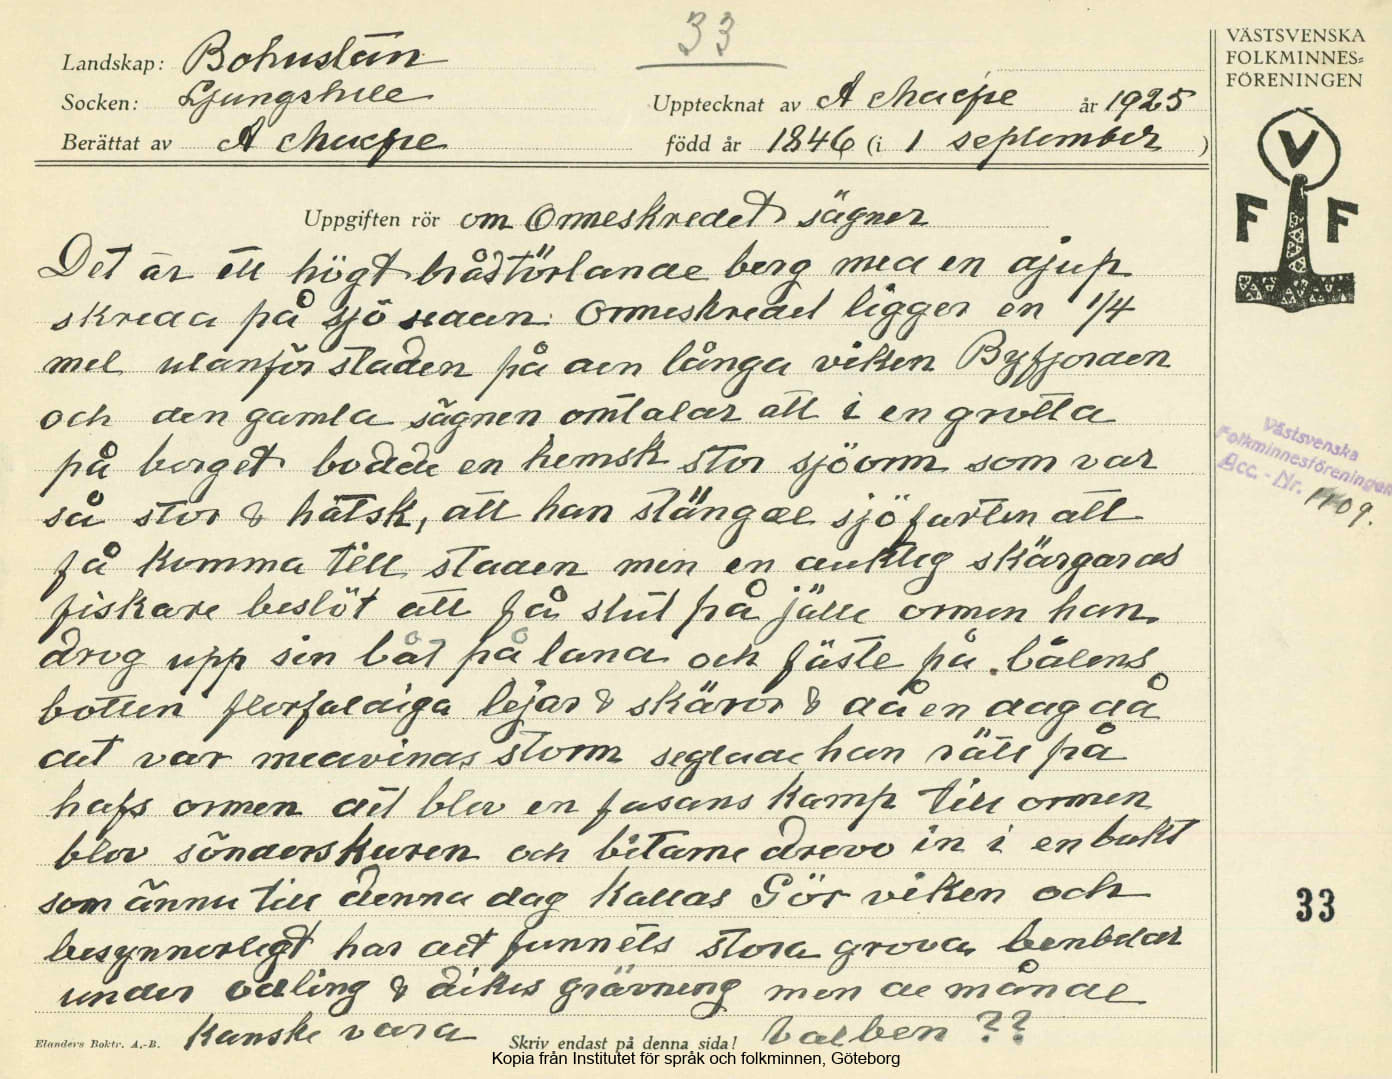 33
Landskap: Bohuslän
Socken: Ljungskile
Berättat av A Macfie
Upptecknat av A Macfie år 1925
född år 1846 (i 1 september)
VÄSTSVENSKA
FOLKMINNES=
FÖRENINGEN
V
F F
Uppgiften rör om Ormeskredet sägner
Det är ett högt bråstörtande berg med en djup
skreda på sjö sidan. Ormeskredet ligger en 1/4
mil utanför staden på den långa viken Byfjorden
och den gamla sägnen omtalar att i en grotta
på berget bodde en hemsk stor sjöorm som var
så stor & hätsk, att han stängde sjöfarten att
få komma till staden men en duktig skärgårds
fiskare beslöt att få slut på jätte ormen han
drog upp sin båt på land och fäste på båtens
botten flerfaldiga lejar & skäror & då en dag då
det var medvinds storm seglade han rätt på
hafs ormen det blev en fasans kamp till ormen
blev sönderskuren och bitarne drevo in i en bukt
som ännu till denna dag kallas Gör viken och
besynnerligt har det funnits stora grova benbitar
under odling & dikes grävning men de månde
kanske vara valben ??
Skriv endast på denna sida!
Elanders Boktr. A.-B.
Västsvenska
Folkminnesföreningen
Acc. - Nr. 1109.
33
Kopia från Institutet för språk och folkminnen, Göteborg